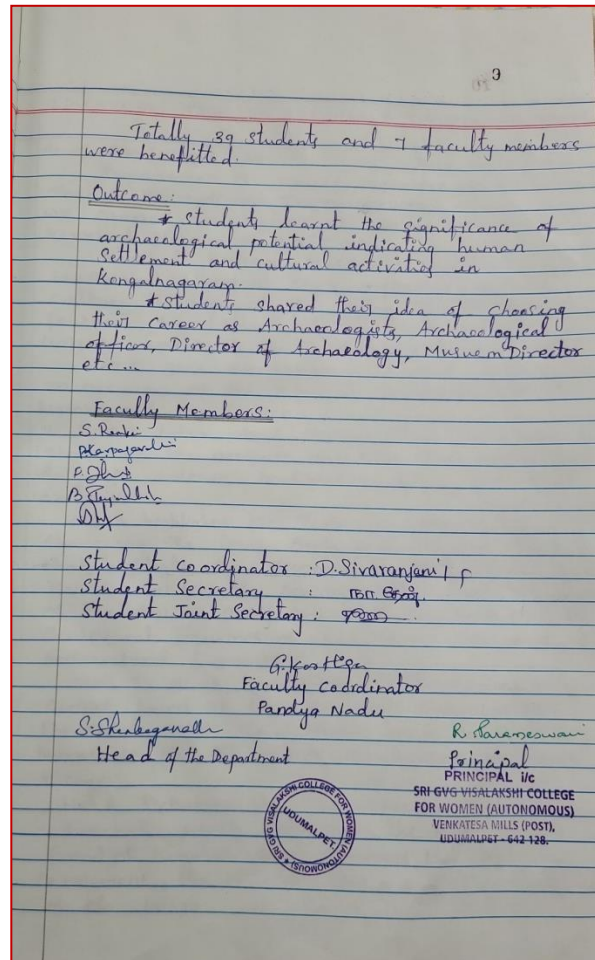 9
Totally 39 students and 7 faculty members
were benefitted.
Outcome:
* Students learnt the significance of
archaeological potential indicating human
Settlement and cultural activities in
Kongalnagaram.
* Students shared their idea of choosing
their career as Archaeologists, Archaeological
officer, Director of Archaeology, Musuem Director
etc...
Faculty Members:
Student Coordinator : D.Sivaranjani
Student Secretary :
Student Joint Secretary :
G.Karthiga
Faculty Coordinator
Pandya Nadu
S.Shenbagavalli
Head of the Department
R. Parameswari
Principal
PRINCIPAL i/c
SRI GVG VISALAKSHI COLLEGE
FOR WOMEN (AUTONOMOUS)
VENKATESA MILLS (POST),
UDUMALPET - 642 128.
SRI GVG VISALAKSHI COLLEGE FOR WOMEN (AUTONOMOUS)
UDUMALPET.